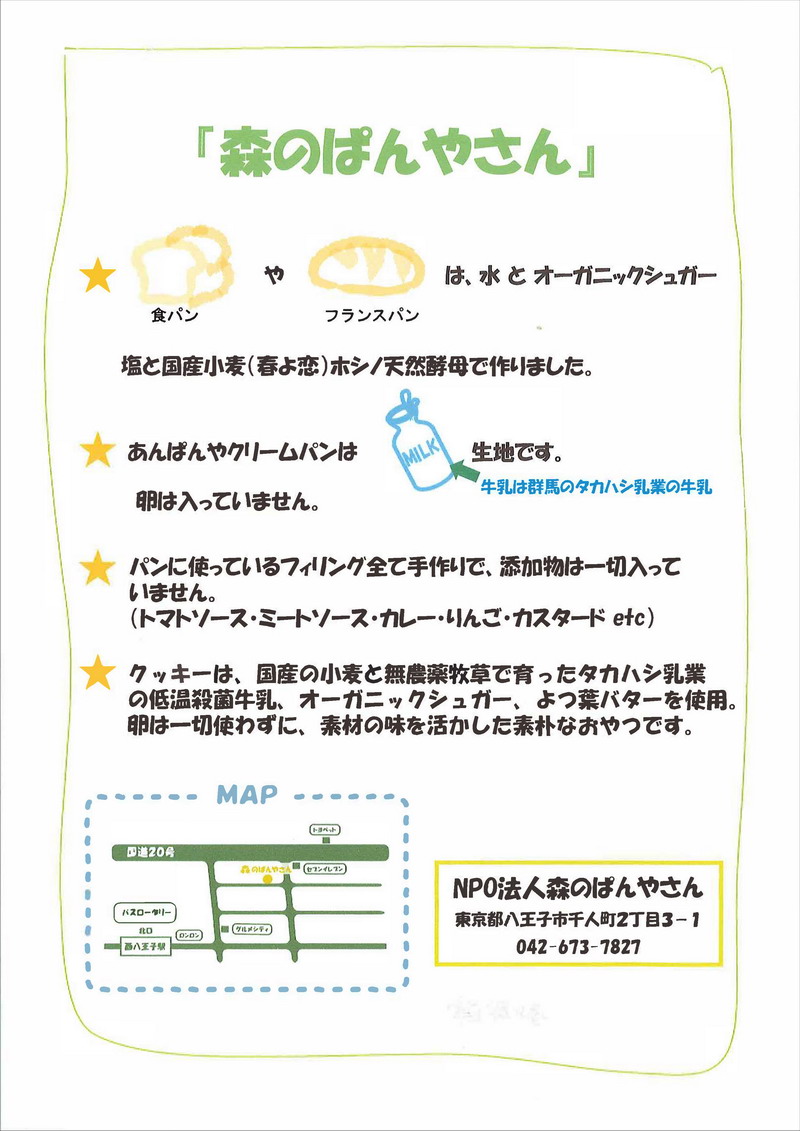 『森のぱんやさん』
★ や は、水 と オーガニックシュガー
食パン フランスパン
塩と国産小麦(春よ恋)ホシノ天然酵母で作りました。
★ あんぱんやクリームパンは MILK 生地です。
牛乳は群馬のタカハシ乳業の牛乳
卵は入っていません。
★ パンに使っているフィリング全て手作りで、添加物は一切入って
いません。
(トマトソース・ミートソース・カレー・りんご・カスタード etc)
★ クッキーは、国産の小麦と無農薬牧草で育ったタカハシ乳業
の低温殺菌牛乳、オーガニックシュガー、よつ葉バターを使用。
卵は一切使わずに、素材の味を活かした素朴なおやつです。
MAP
トヨペット
国道20号
森のぱんやさん
セブンイレブン
バスロータリー
北口
ロンロン
グルメシティ
西八王子駅
NPO法人森のぱんやさん
東京都八王子市千人町2丁目3-1
042-673-7827